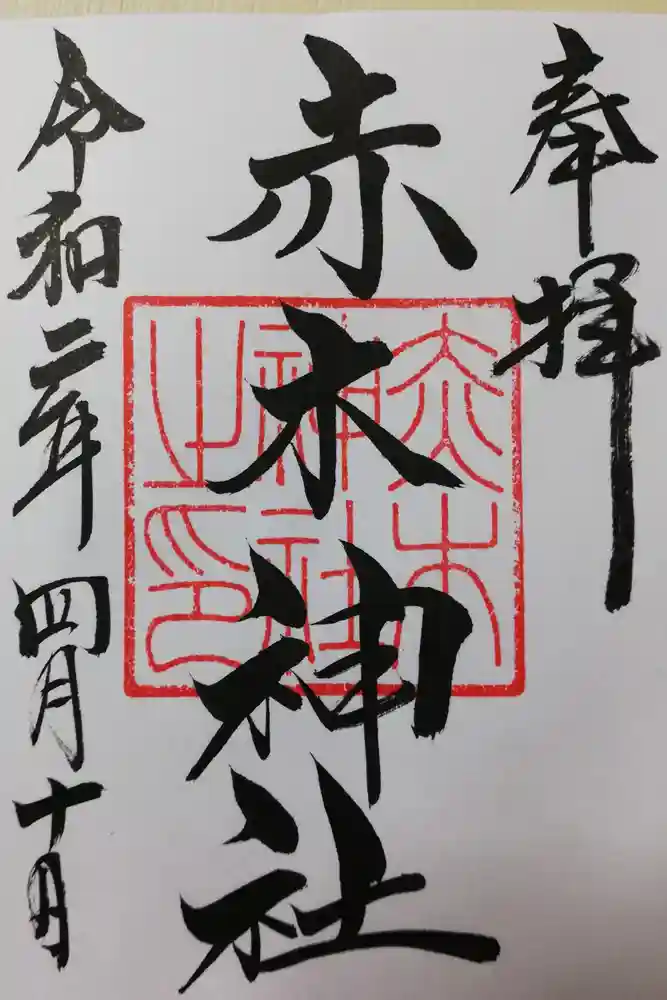 奉拝
赤木神社
令和二年四月十日
赤木
神社
之印